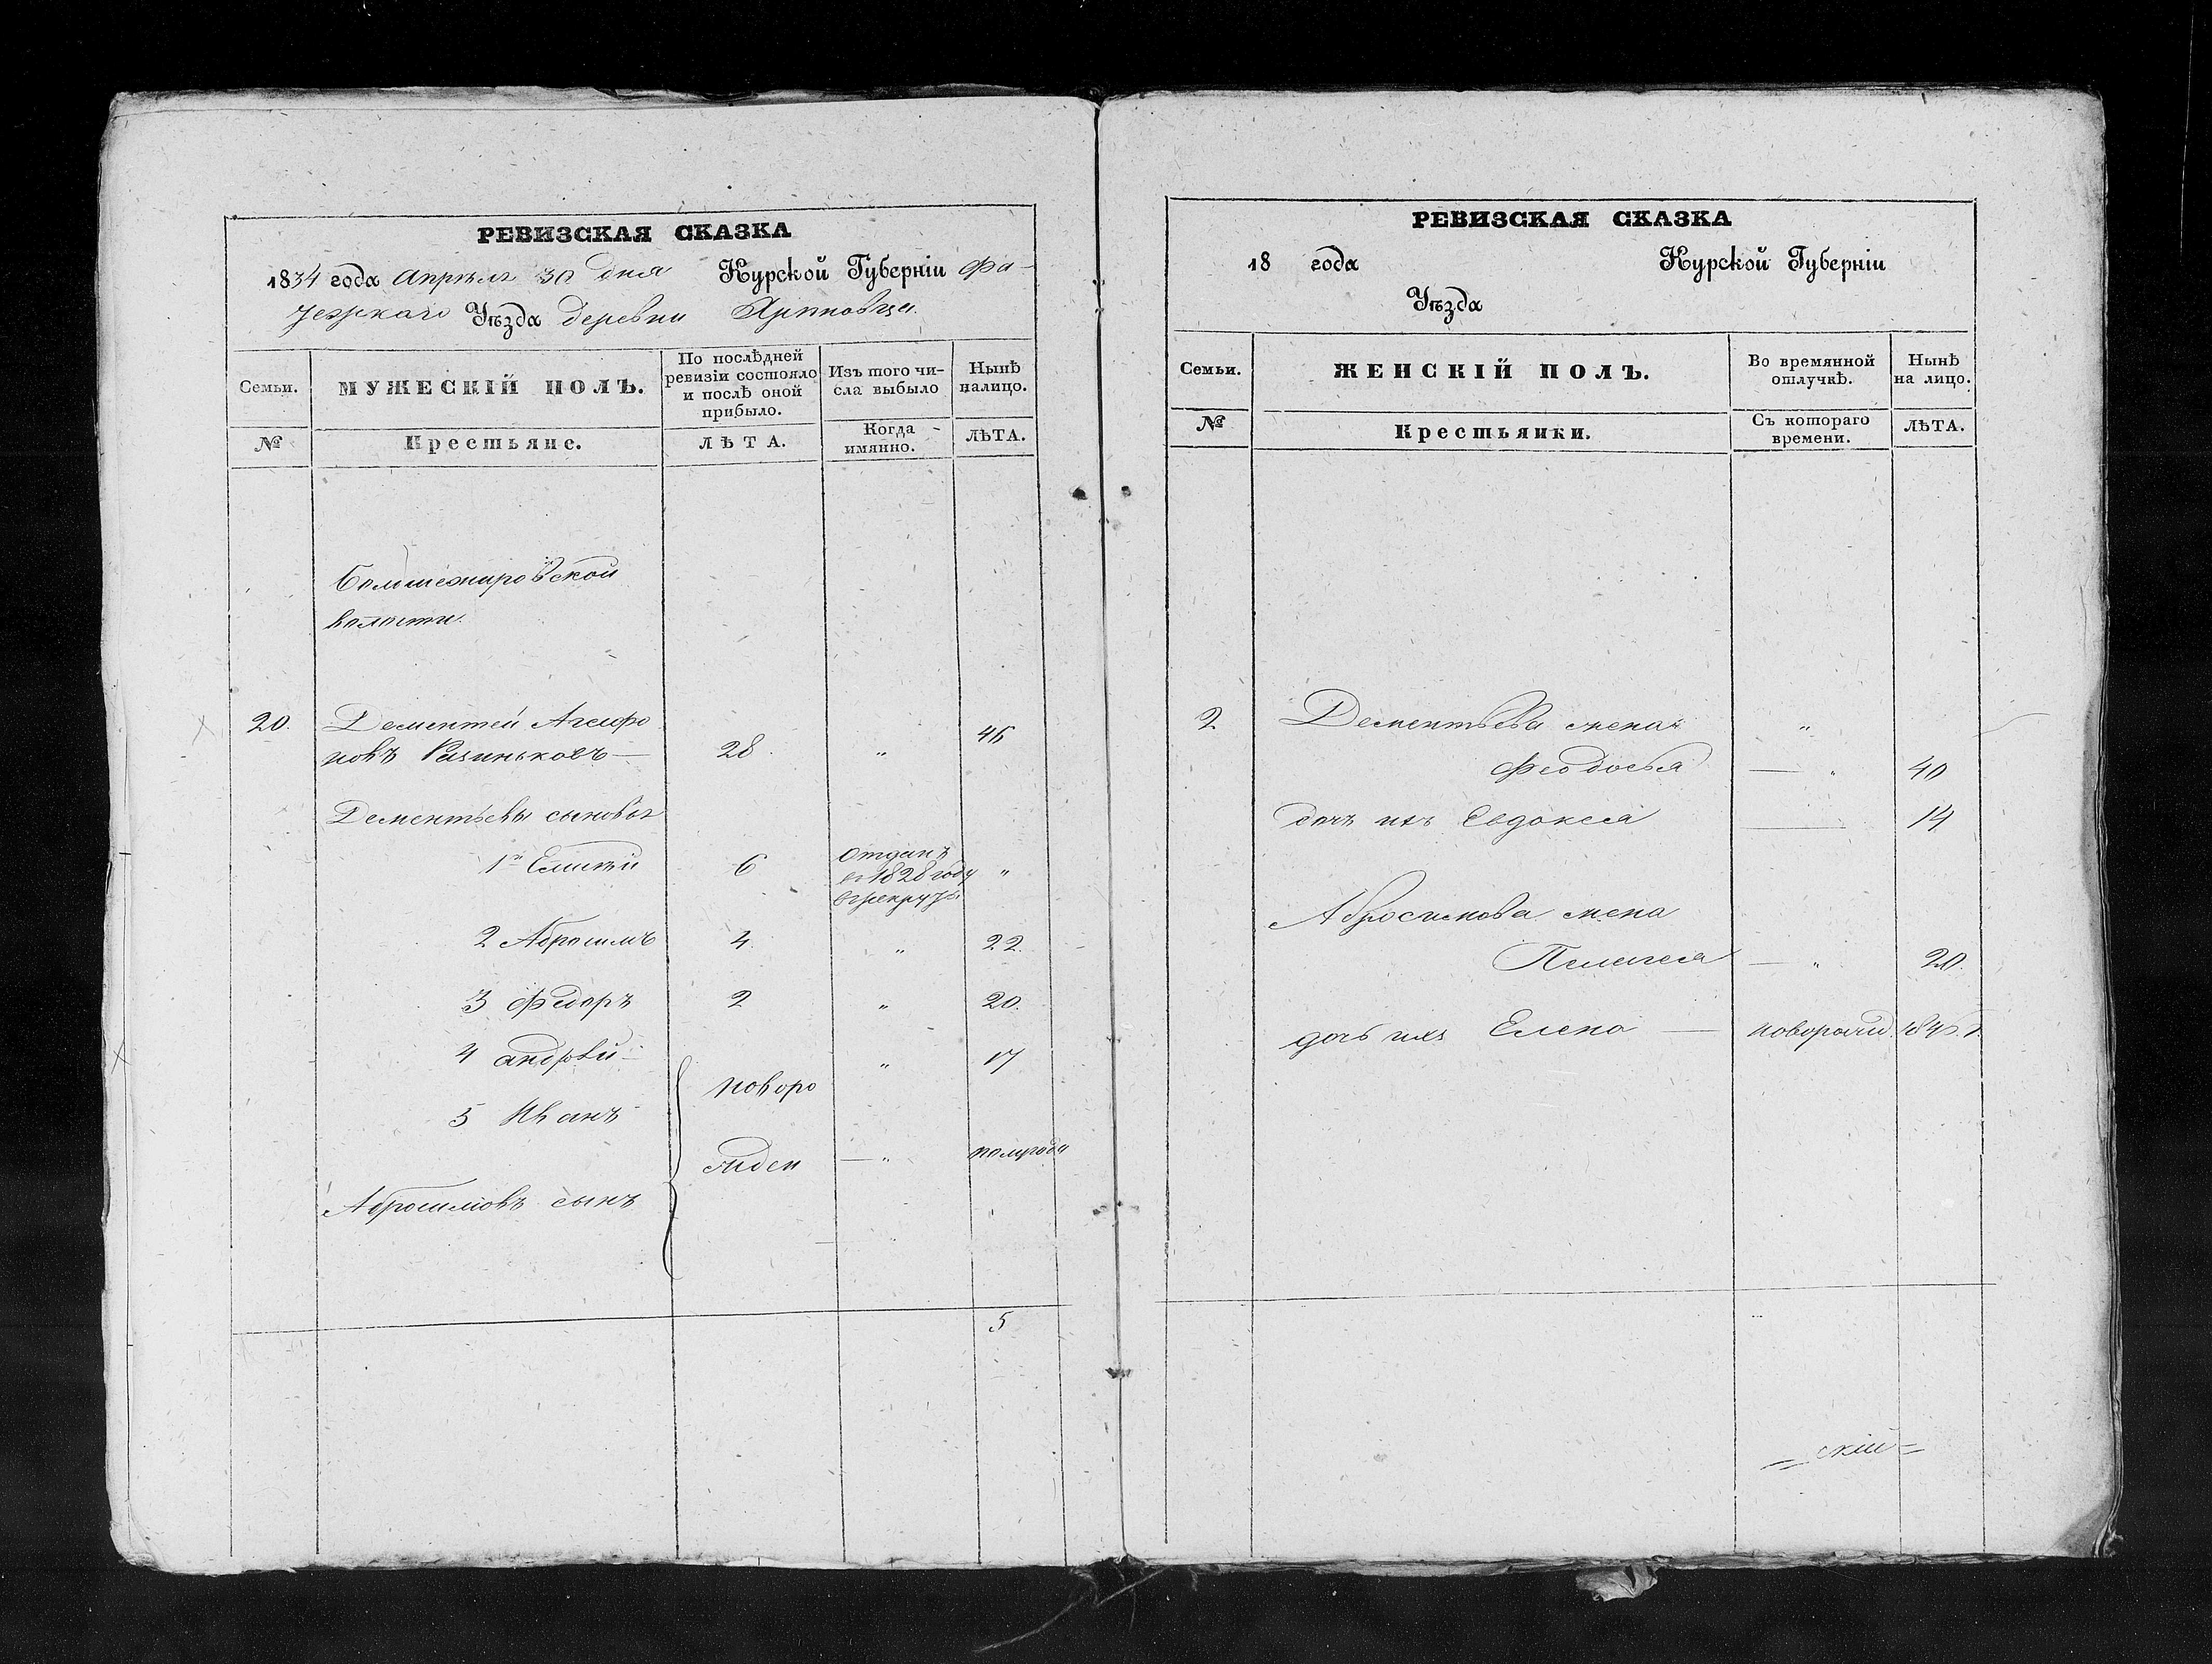 РЕВИЗСКАЯ СКАЗКА
1834 года Апрѣля 30 дня Курской Губерніи Фа-
тежскаго Уѣзда деревни
Семьи.
МУЖЕСКІЙ ПОЛЪ.
По послѣдней ревизіи состояло и послѣ оной прибыло.
Изъ того чи-
сла выбыло
Нынѣ
налицо.
№
Крестьяне.
ЛѢТА.
Когда
имянно.
ЛѢТА.
волости.
20. Дементей Агафо
новъ 28 " 46
Дементьевы сыновья
1й 6 Отданъ
въ 1828 году "
в рекруты
2 Абросимъ 4 " 22.
3 Федоръ 2 " 20.
4 андрѣй " 17
новоро
5 Иванъ
жден — " полугода
Абросимовъ сынъ
5
РЕВИЗСКАЯ СКАЗКА
18 года Курской Губерніи
Уѣзда
Семьи.
ЖЕНСКІЙ ПОЛЪ.
Во времянной
отлучкѣ.
Нынѣ
на лицо.
№
Крестьянки.
Съ котораго
времени.
ЛѢТА.
2 Дементьева жена "
Феодосья — " 40
дочь ихъ Евдокея — 14
Абросимова жена
Пелагея — " 20.
дочь ихъ Елена — новорожд.
скій